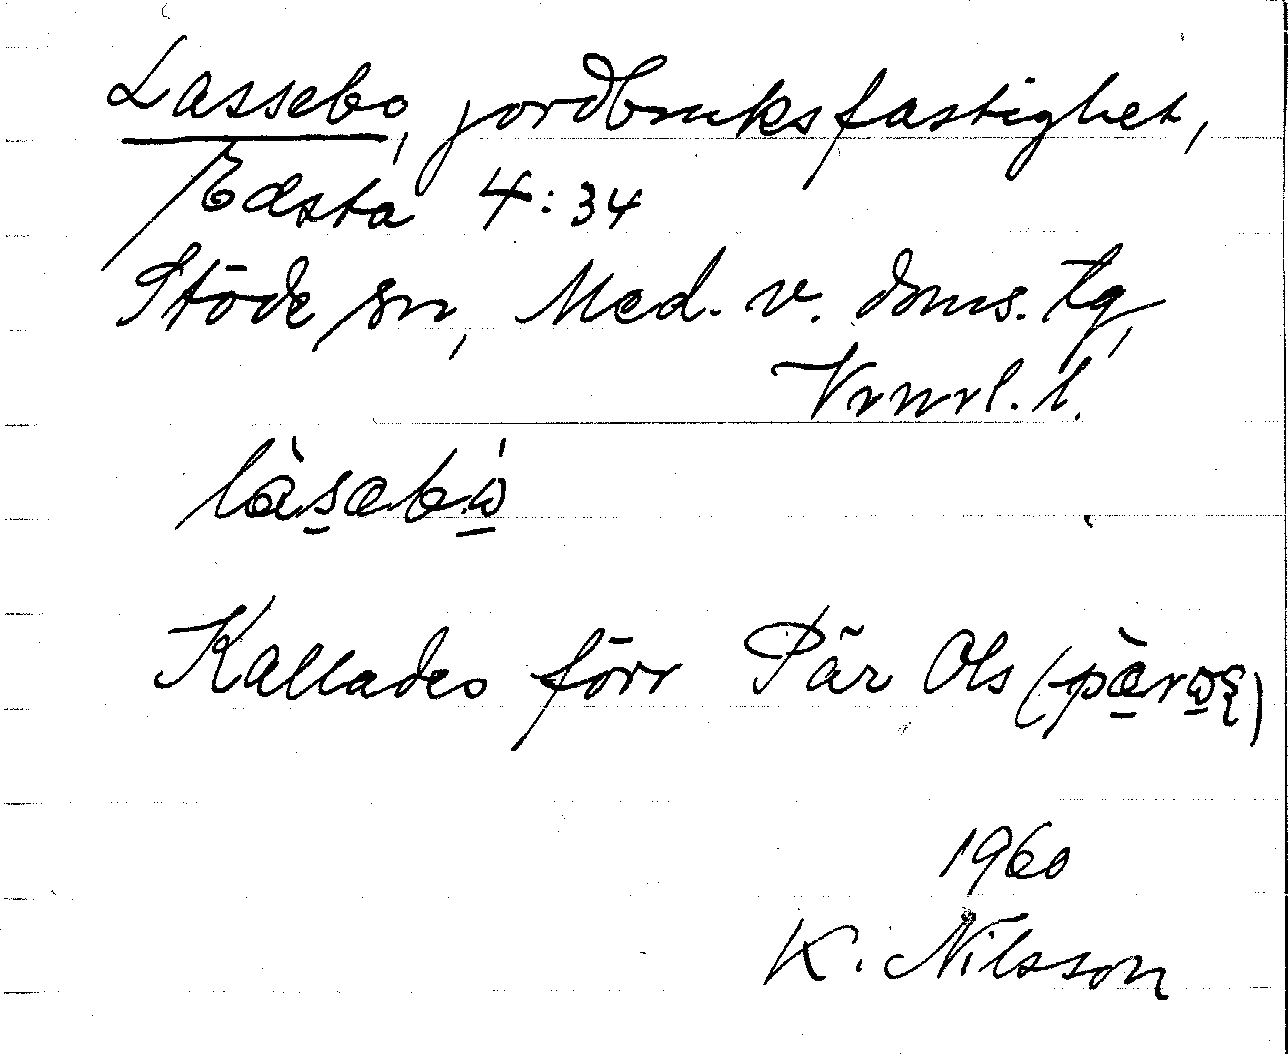 Lassebo, jordbruksfastighet,
Edsta 4:34
Stöde sn, Med. v. doms. tg,
Vrnrl. l.
làsabó
Kallades förr Pär Ols (pàroș)
1960
K. Nilsson